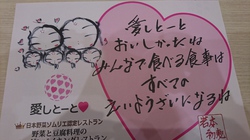 愛しとーと
おいしかったね
みんなで食べる食事は
すべての
えいようざいになるね
愛しとーと
日本野菜ソムリエ認定レストラン
野菜と豆腐料理の